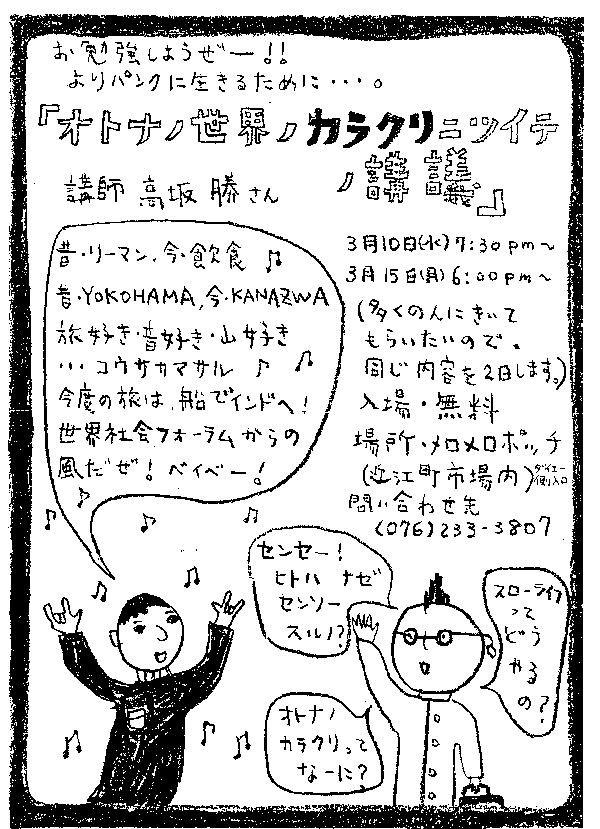 お勉強しようぜー!!
よりパンクに生きるために・・・。
『オトナノ世界ノカラクリニツイテ
ノ講議』
講師 高坂 勝さん
昔・リーマン, 今・飲食
昔・YOKOHAMA, 今・KANAZWA
旅好き・音好き・山好き
・・・コウサカマサル
今度の旅は、船でインドへ!
世界社会フォーラムからの
風だぜ! ベイベー!
3月10日(水) 7:30pm〜
3月15日(月) 6:00pm〜
(多くの人にきいて
もらいたいので。
同じ内容を2日します。)
入場・無料
場所・メロメロポッチ
(近江町市場内)ダイエー側入口
問い合わせ先
(076)233-3807
センセー!
ヒトハ ナゼ
センソー
スルノ?
スローライフ
って
どう
やる
の?
オトナノ
カラクリって
なーに?